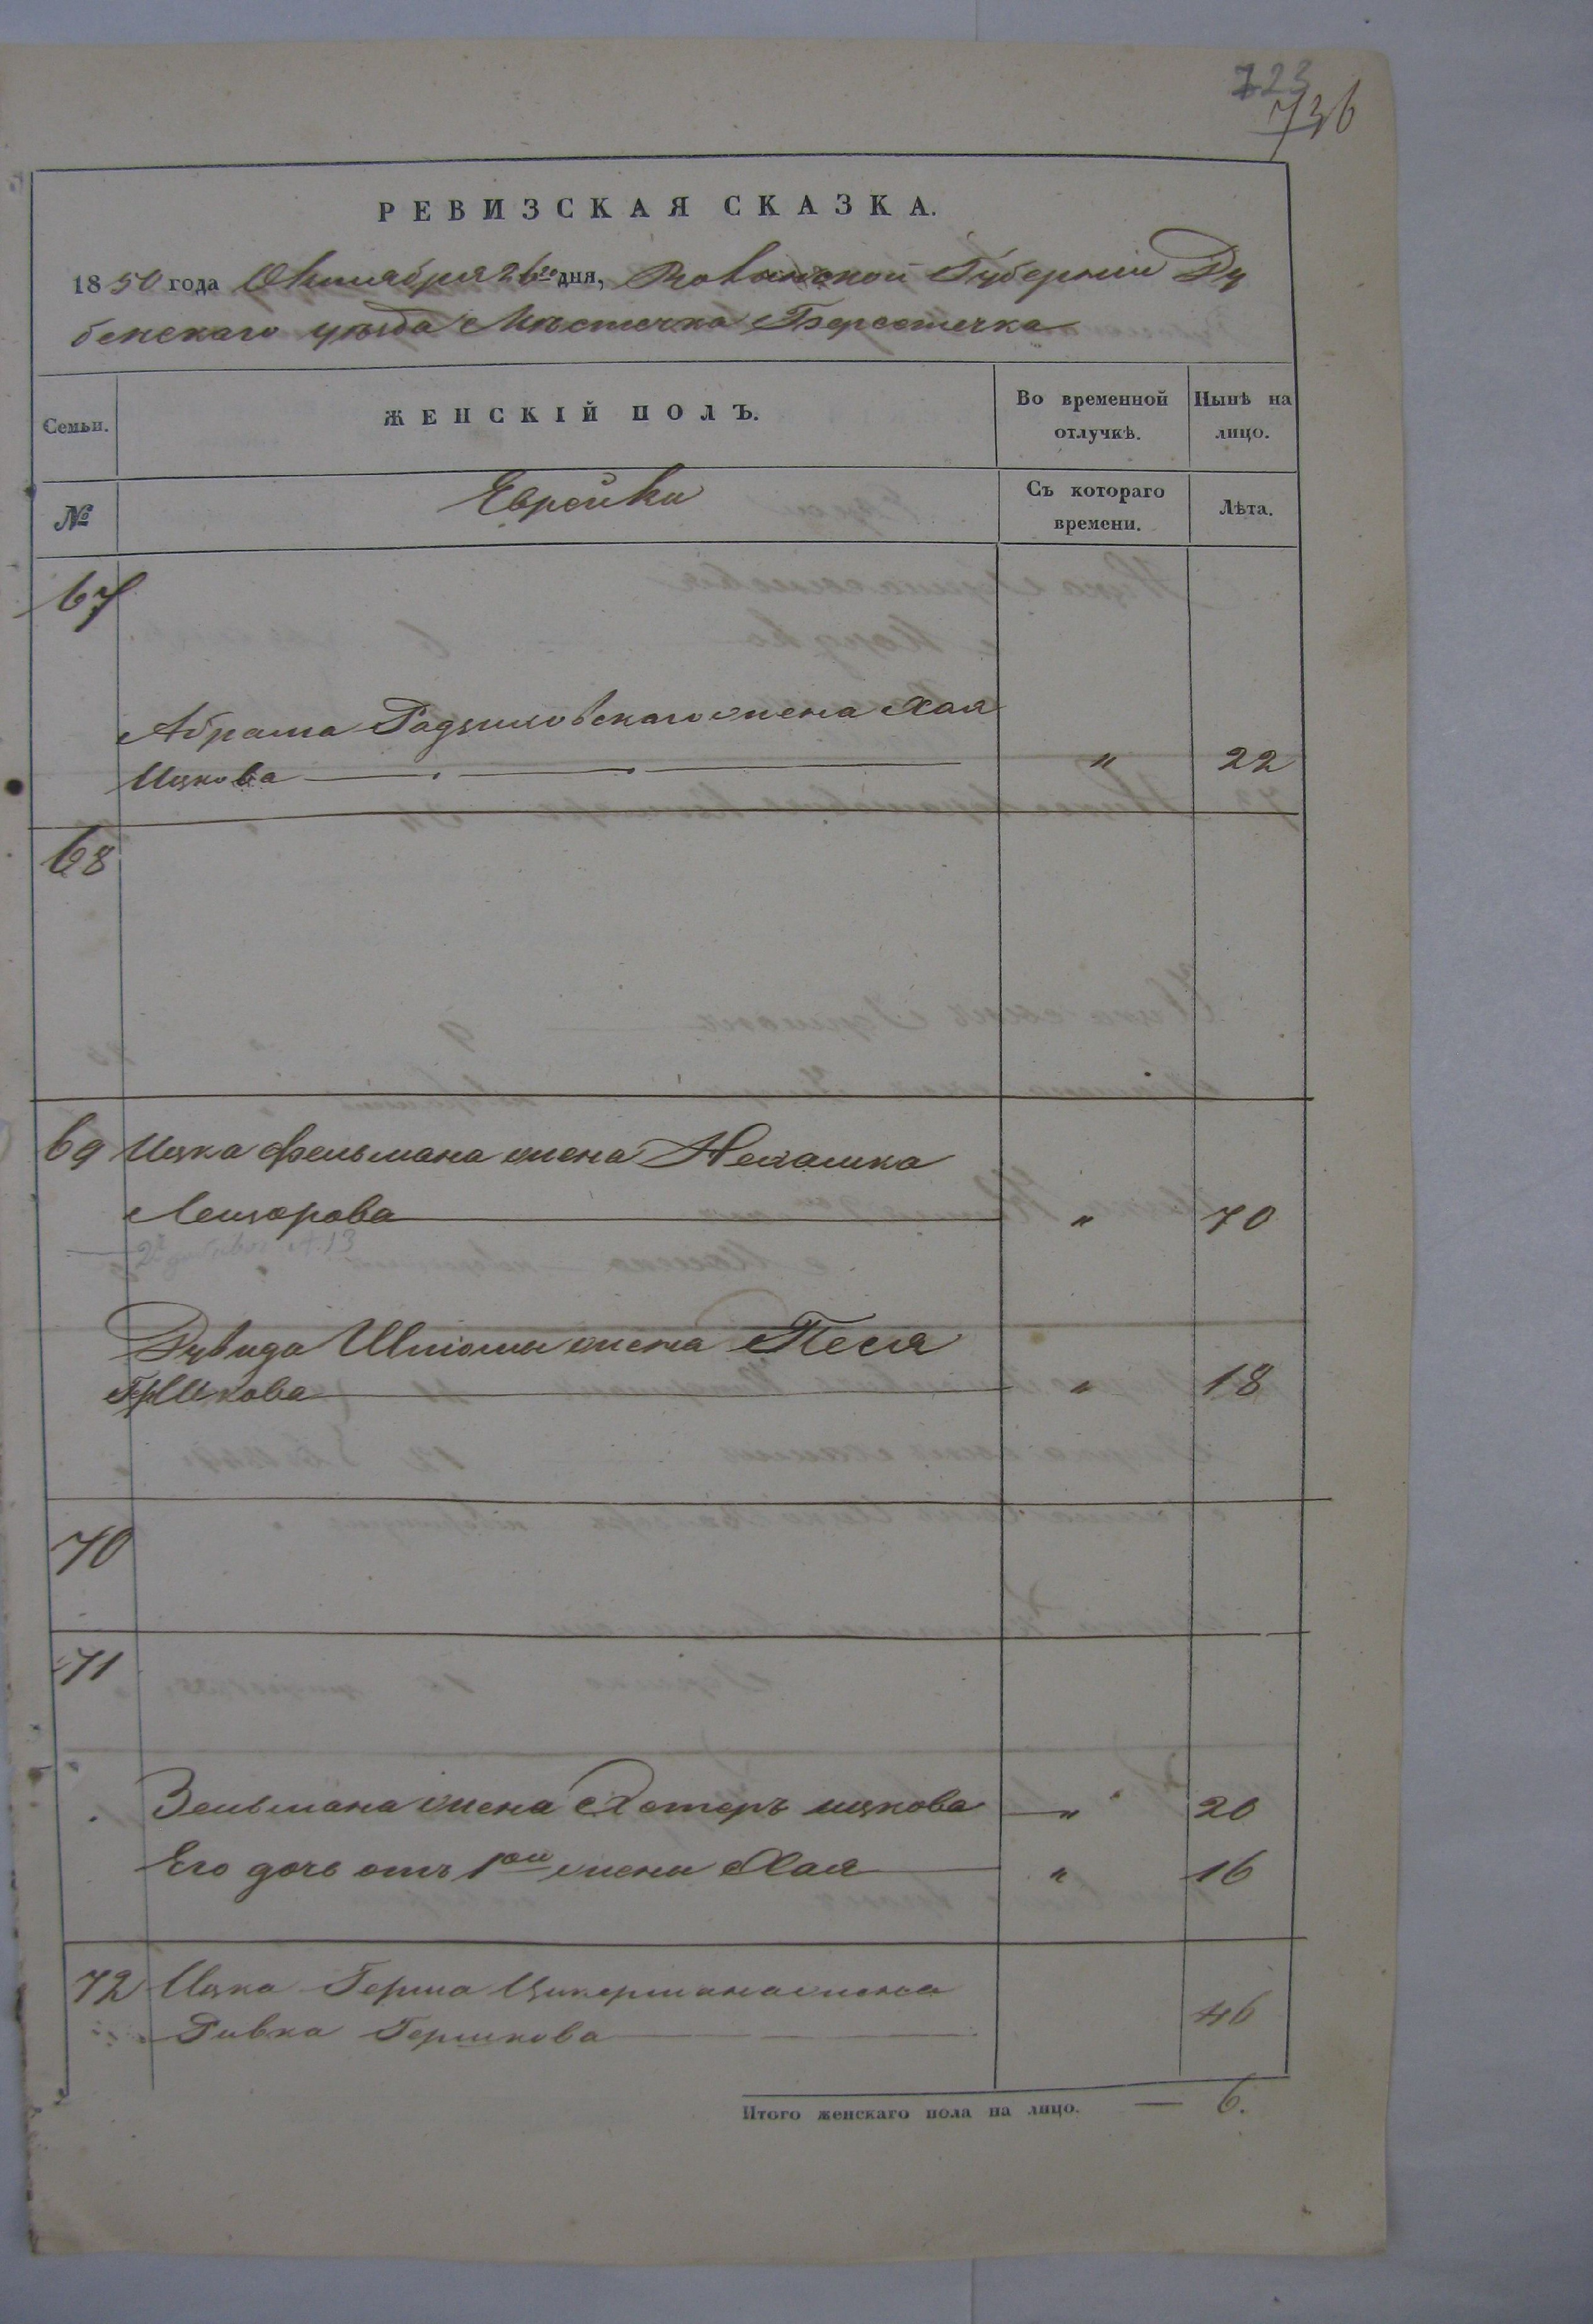 723
736
РЕВИЗСКАЯ СКАЗКА.
1850 года Октября 26го дня, Волынской Губерніи Ду
бенскаго уѣзда Мѣстечка Берестечка
Семьи.
ЖЕНСКІЙ ПОЛЪ.
Во временной отлучкѣ.
Нынѣ на лицо.
№
Еврейки
Съ котораго времени.
Лѣта.
67
Абрама Радзиловскаго жена Хая
Ицкова " 22
68
69 Ицка Фельмана жена Нехамка
Лейзорова " 70
Дувида Шлiомы жена Песя
Гершкова " 18
70
71
Зельмана жена Эстеръ ицкова " 20
Его дочь отъ 1ой жены Хая " 16
72 Ицка Герша Цикермана жена
Ривка Гершкова 46
Итого женскаго пола на лицо. — 6.